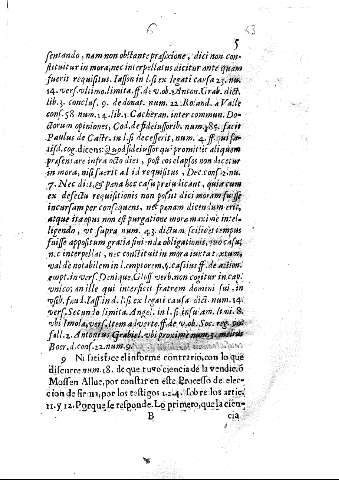 6 53
5
sentando, nam non obstante prafixione, dici non con-
stituitur in mora, nec interpellatus dicitur ante quam
fuerit requisitus. Iasson in l. si ex legati causa 23. nu.
14. vers. vltimo limita. ff. de v. ob. Anton. Grab. dict.
lib. 3. conclus. 9. de donat. num. 22. Roland. a Valle
cons. 58. num. 14. lib. 3. Cacheran. inter commun. Do-
ctorum opiniones, Cod. de fideiussorib. num. 185. facit
Paulus de Castr. in l. si decesserit, num. 4. ff. qui sa-
tisd. cog. dicens: quod fideiussor qui promittit aliquem
præsentare infra octo dies, post eos elapsos non dicetur
in mora, nisi fuerit ad id requisitus, Dec. cons. 2. nu.
7. Nec dies & pena hoc casu præiudicant, quia cum
ex defectu requisitionis non possit dici moram fuisse
incursam per consequens, nec penam dicendum erit,
atque ita opus non est purgatione mora maxime intel-
ligendo, vt supra num. 43. dictum scilicet tempus
fuisse appositum gratia finienda obligationis, quo casu,
nec interpellat, nec constituit in mora iuxta textum,
val de notabilem in l. emptorem, §. cassius ff. de action.
empt. in vers. Denique. Gloss. verb. non cogitur in cap.
vnico, an ille qui interficit fratrem domini sui, in
vsib. feud. Iass. in d. l. si ex legati causa dict. num. 14.
vers. Secundo limita. Angel. in l. si insulam. ini. 8.
vbi Imola, vers. Item aduerte. ff. de v. ob. Soc. reg. 
fall. 2. Antonius Grabiel. vbi proxime num.
Boer. d. cons. 22. num. 9.
9 Ni satisface el informe contrario, con lo que
discurre num. 18. de que tuvo ciencia de la vendicio
Mossen Allue, por constar en este Processo de elec-
cion de firma, por los testigos 1. 2. 4. sobre los artic.
11. y 12. Porque se responde. Lo primero, que la cien-
B cia